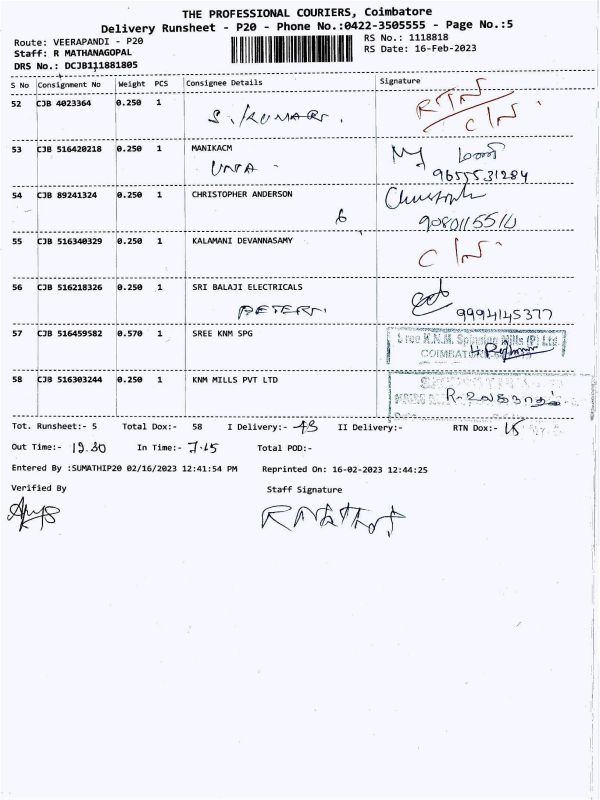 THE PROFESSIONAL COURIERS, Coimbatore
Delivery Runsheet - P20 - Phone No.:0422-3505555 - Page No.:5
Route: VEERAPANDI - P20
RS No.: 1118818
Staff: R MATHANAGOPAL
RS Date: 16-Feb-2023
DRS No.: DCJB111881805
S No Consignment No Weight PCS Consignee Details Signature
52 CJB 4023364 0.250 1
S. KUMAR. RTN
C/N.
53 CJB 516420218 0.250 1 MANIKACM
UMA 9655531284
54 CJB 89241324 0.250 1 CHRISTOPHER ANDERSON Christoph
6 9080115510
55 CJB 516340329 0.250 1 KALAMANI DEVANNASAMY C/N.
56 CJB 516218326 0.250 1 SRI BALAJI ELECTRICALS
PETER. 9994145377
57 CJB 516459582 0.570 1 SREE KNM SPG Sree K.N.M. Spinning Mills (P) Ltd
COIMBATORE
58 CJB 516303244 0.250 1 KNM MILLS PVT LTD
Tot. Runsheet:- 5 Total Dox:- 58 I Delivery:- 43 II Delivery:- RTN Dox:- 15
Out Time:- 12.30 In Time:- 7.15 Total POD:-
Entered By :SUMATHIP20 02/16/2023 12:41:54 PM Reprinted On: 16-02-2023 12:44:25
Verified By Staff Signature